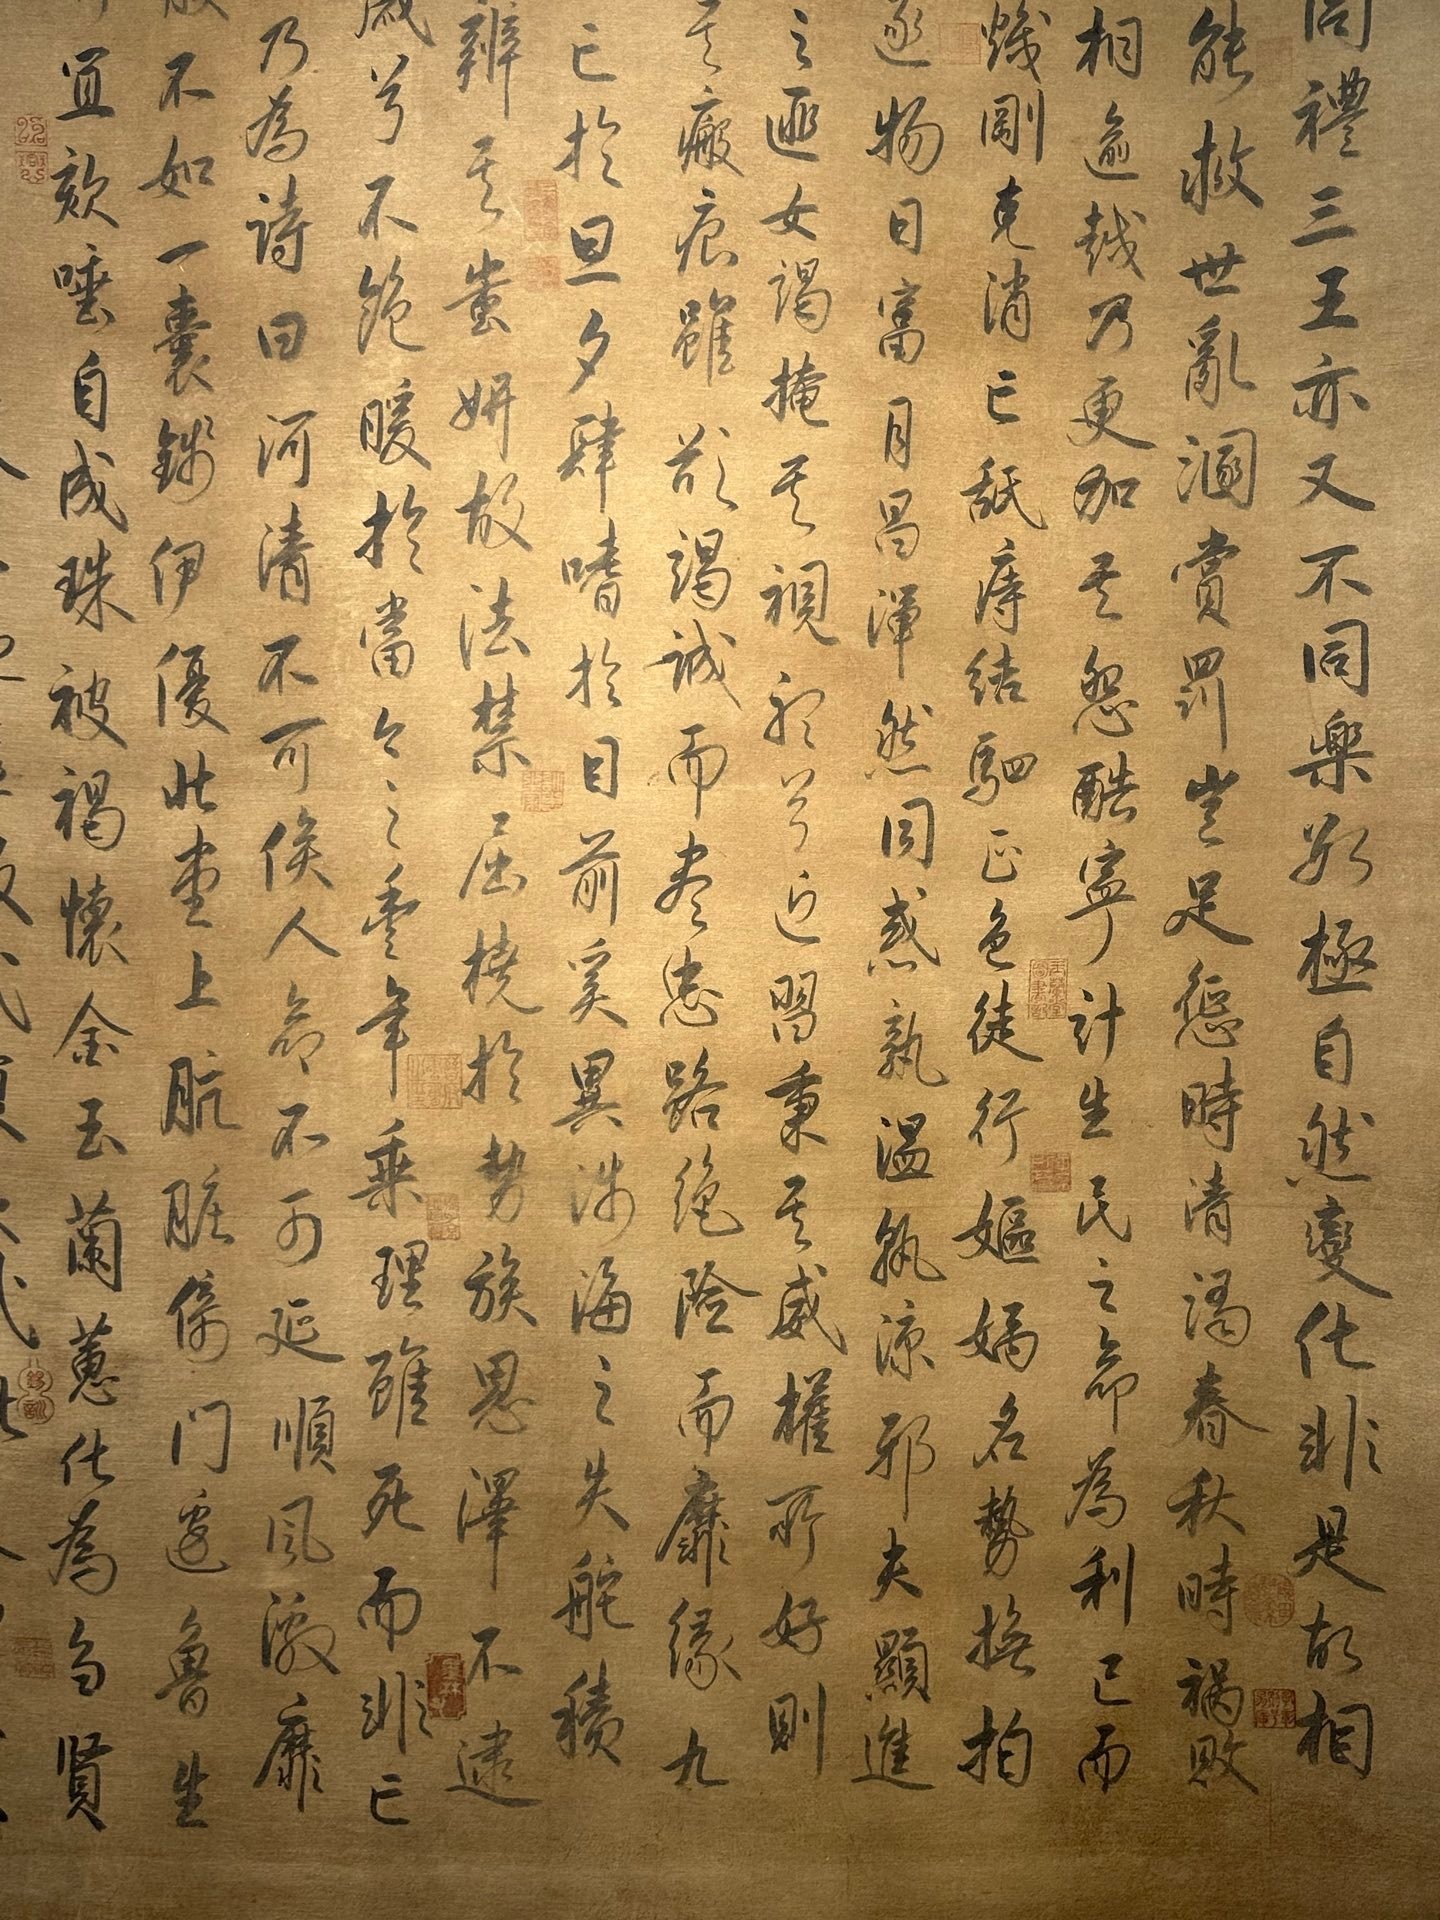 同禮三王亦又不同樂數極自然變化非是故相
能救世亂溷賞罰豈足懲時清濁春秋時禍敗
相逾越乃更加其怨酷寧計生民之命為利己而
熾剛克消亡舐痔結駟正色徒行嫗媀名勢撫拍
逐物日富月昌渾然同惑孰溫孰涼邪夫顯進
之匪女謁掩其視聽兮近習秉其威權所好則
其瘢痕雖欲竭誠而盡忠路絕險而靡緣九
亡於旦夕肆嗜於目前奚異涉海之失舵積
辨其蚩妍故法禁屈橈於勢族恩澤不逮
歲兮不飽暖於當今之豐年乘理雖死而非亡
乃為詩曰河清不可俟人命不可延順風激靡
不如一囊錢伊優北堂上肮髒倚門邊魯生
宜欬唾自成珠被褐懷金玉蘭蕙化為芻賢